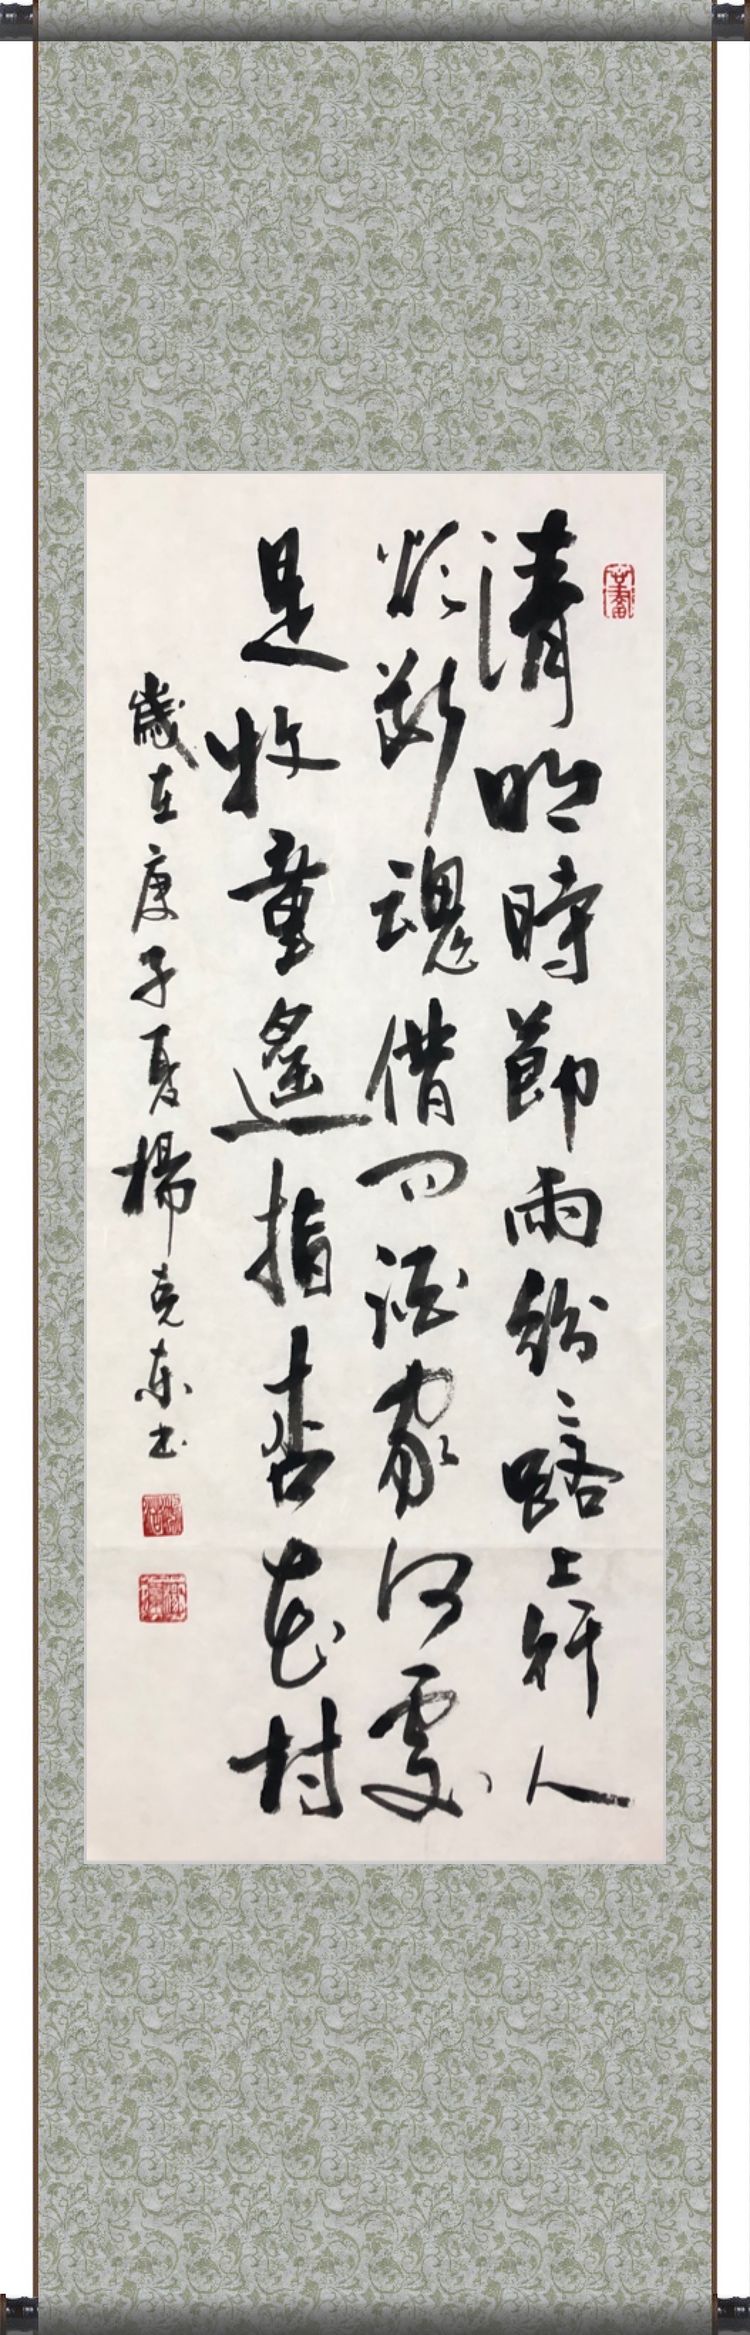 清明時節雨紛〻路上行人
欲斷魂借問酒家何處
是牧童遙指杏花村
歲在庚子夏楊克東书